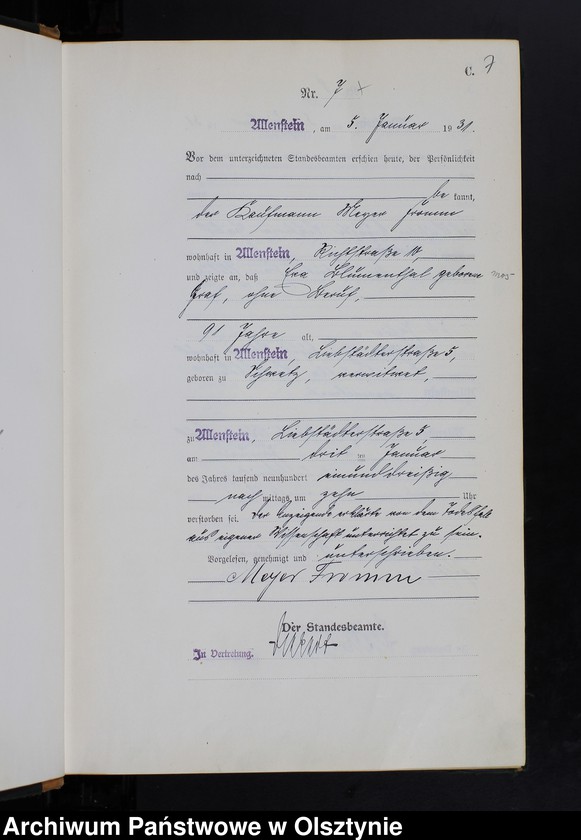 C. 7
Nr. 7
Allenstein, am 5. Januar 1931.
Vor dem unterzeichneten Standesbeamten erschien heute, der Persönlichkeit
nach
be kannt,
der Kaufmann Meyer Fromm
wohnhaft in Allenstein, Richtstraße
und zeigte an, daß Eva Blumenthal geborene
Graf, ohne Beruf,
91 Jahre alt,
wohnhaft in Allenstein, Liebstädterstraße 5,
geboren zu Schwetz, verwitwet,
zu Allenstein, Liebstädterstraße 5,
am drit en Januar
des Jahres tausend neunhundert einunddreißig
nach mittags um zehn Uhr
verstorben sei. Der Anzeigende erklärte von dem Todesfalle
aus eigener Wissenschaft unterrichtet zu sein.
Vorgelesen, genehmigt und unterschrieben.
Meyer Fromm
Der Standesbeamte.
In Vertretung.
Archiwum Państwowe w Olsztynie